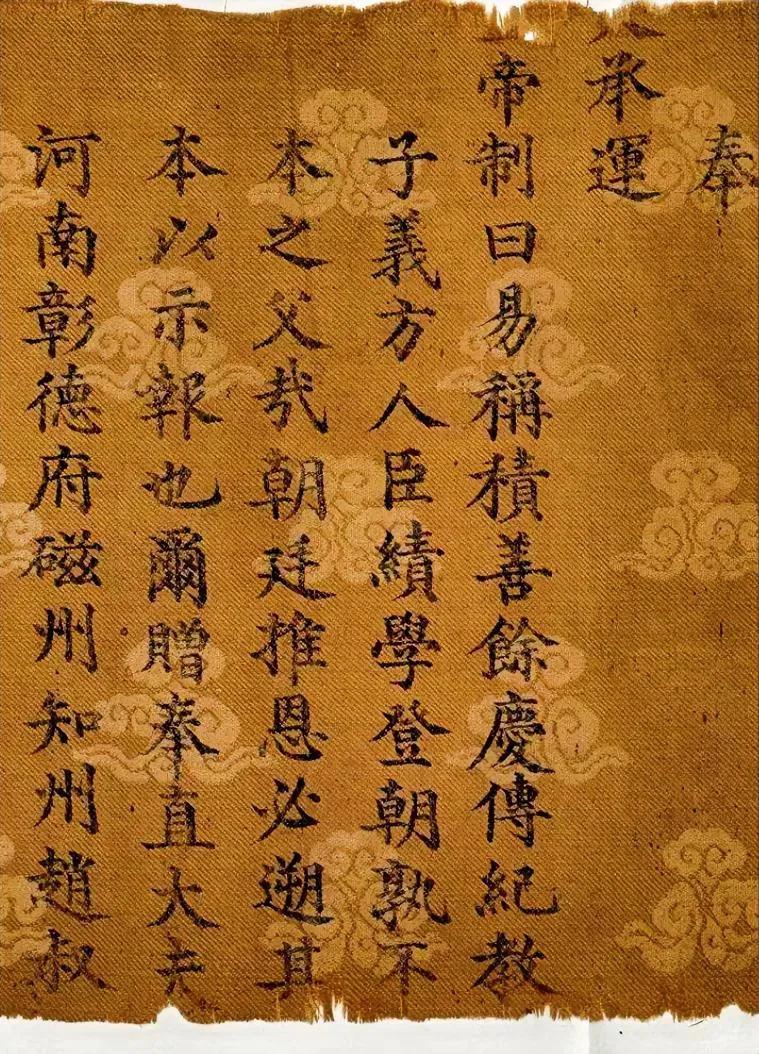 奉
承運
帝制曰易稱積善餘慶傳紀教
子義方人臣績學登朝孰不
本之父哉朝廷推恩必遡其
本以示報也爾贈奉直大夫
河南彰德府磁州知州趙叔